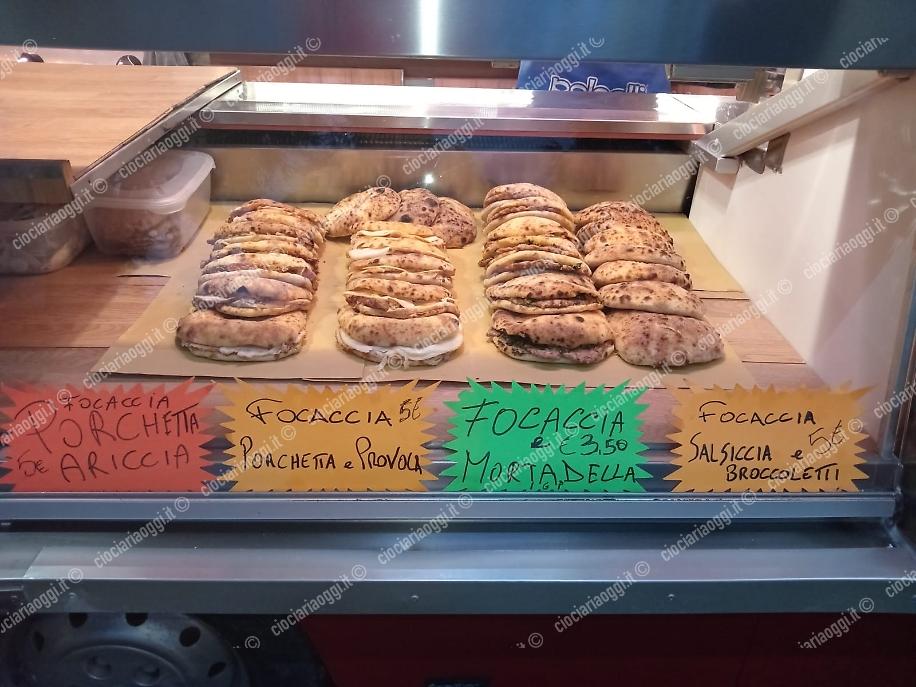 FOCACCIA
PORCHETTA
5€ ARICCIA
FOCACCIA 5€
PORCHETTA e PROVOLA
FOCACCIA
e €3,50
MORTADELLA
FOCACCIA
SALSICCIA e 5€
BROCCOLETTI
ciociariaoggi.it ©